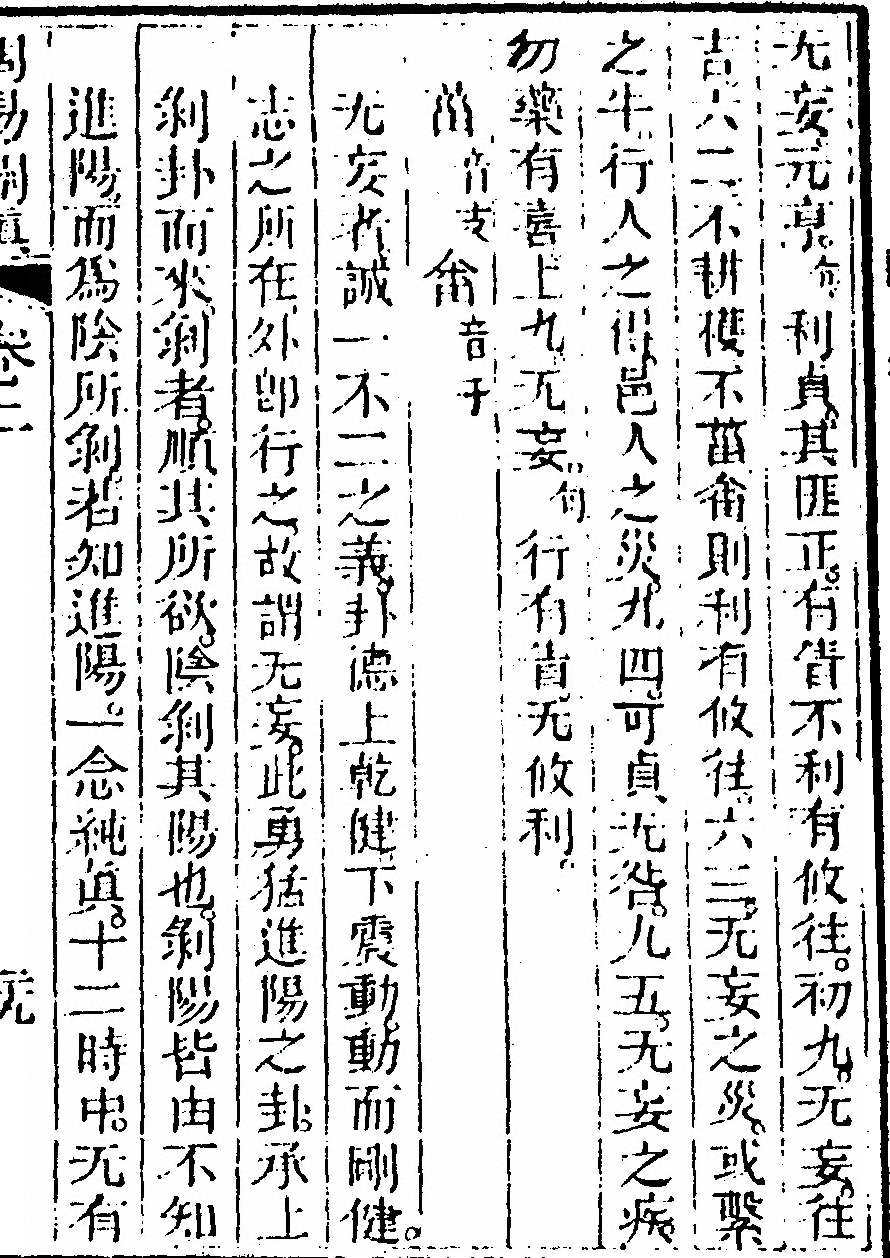 无妄元亨。句利貞。其匪正。有眚不利有攸往。初九。无妄。往
吉六二不耕穫不菑畬則利有攸往。六三。无妄之災。或繫
之牛。行人之得。邑人之災。九四。可貞无咎。九五。无妄之疾。
勿藥有喜上九。无妄。句行有眚。无攸利。
菑音支畬音于
无妄者。誠一不二之義。卦德上乾健。下震動。動而剛健。
志之所在。外卽行之。故謂无妄。此勇猛進陽之卦。承上
剝卦而來。剝者。順其所欲。陰剝其陽也。剝陽皆由不知
進陽而爲陰所剝。若知進陽。一念純眞。十二時中。无有
卷二